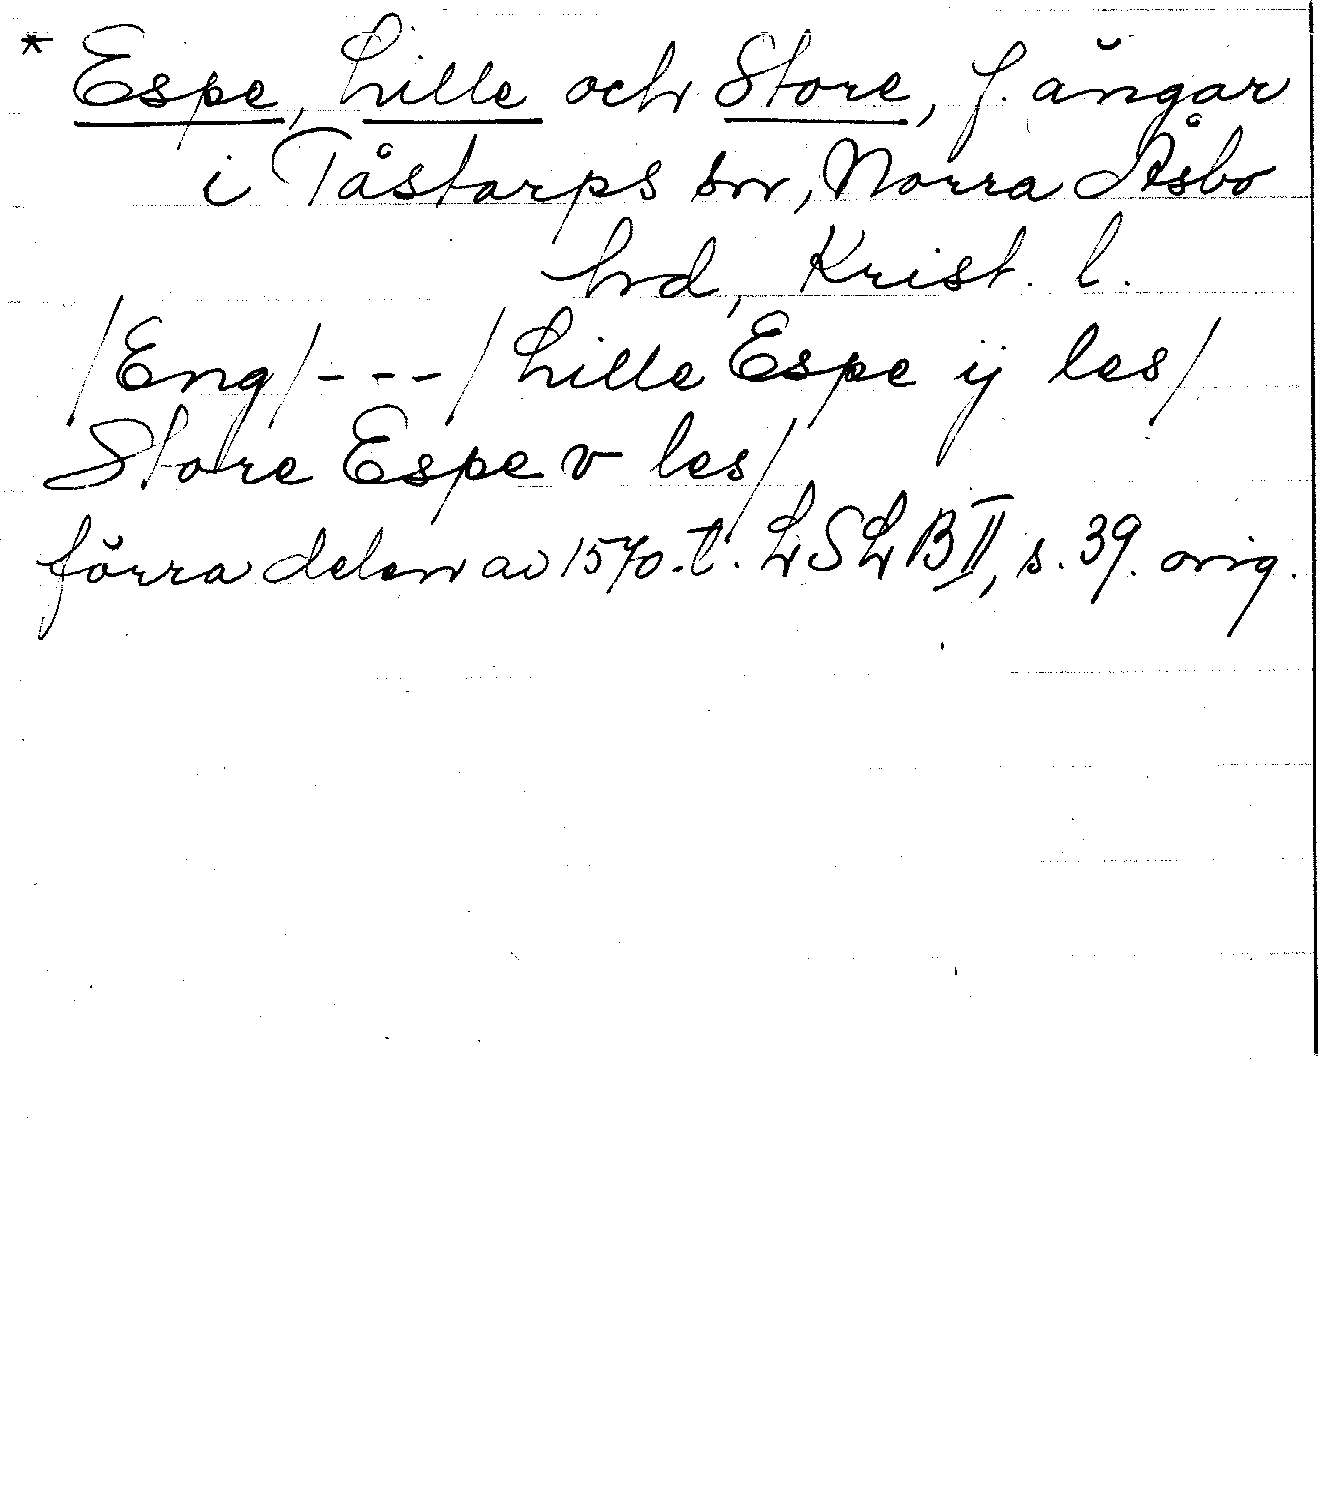 * Espe, Lille och Store, f. ängar
i Tåstarps sn, Norra Åsbo
hd, Krist. l.
/Eng/---/Lille Espe ij les/
Store Espe v les/
förra delen av 1570-t. LSLB II, s. 39. orig.